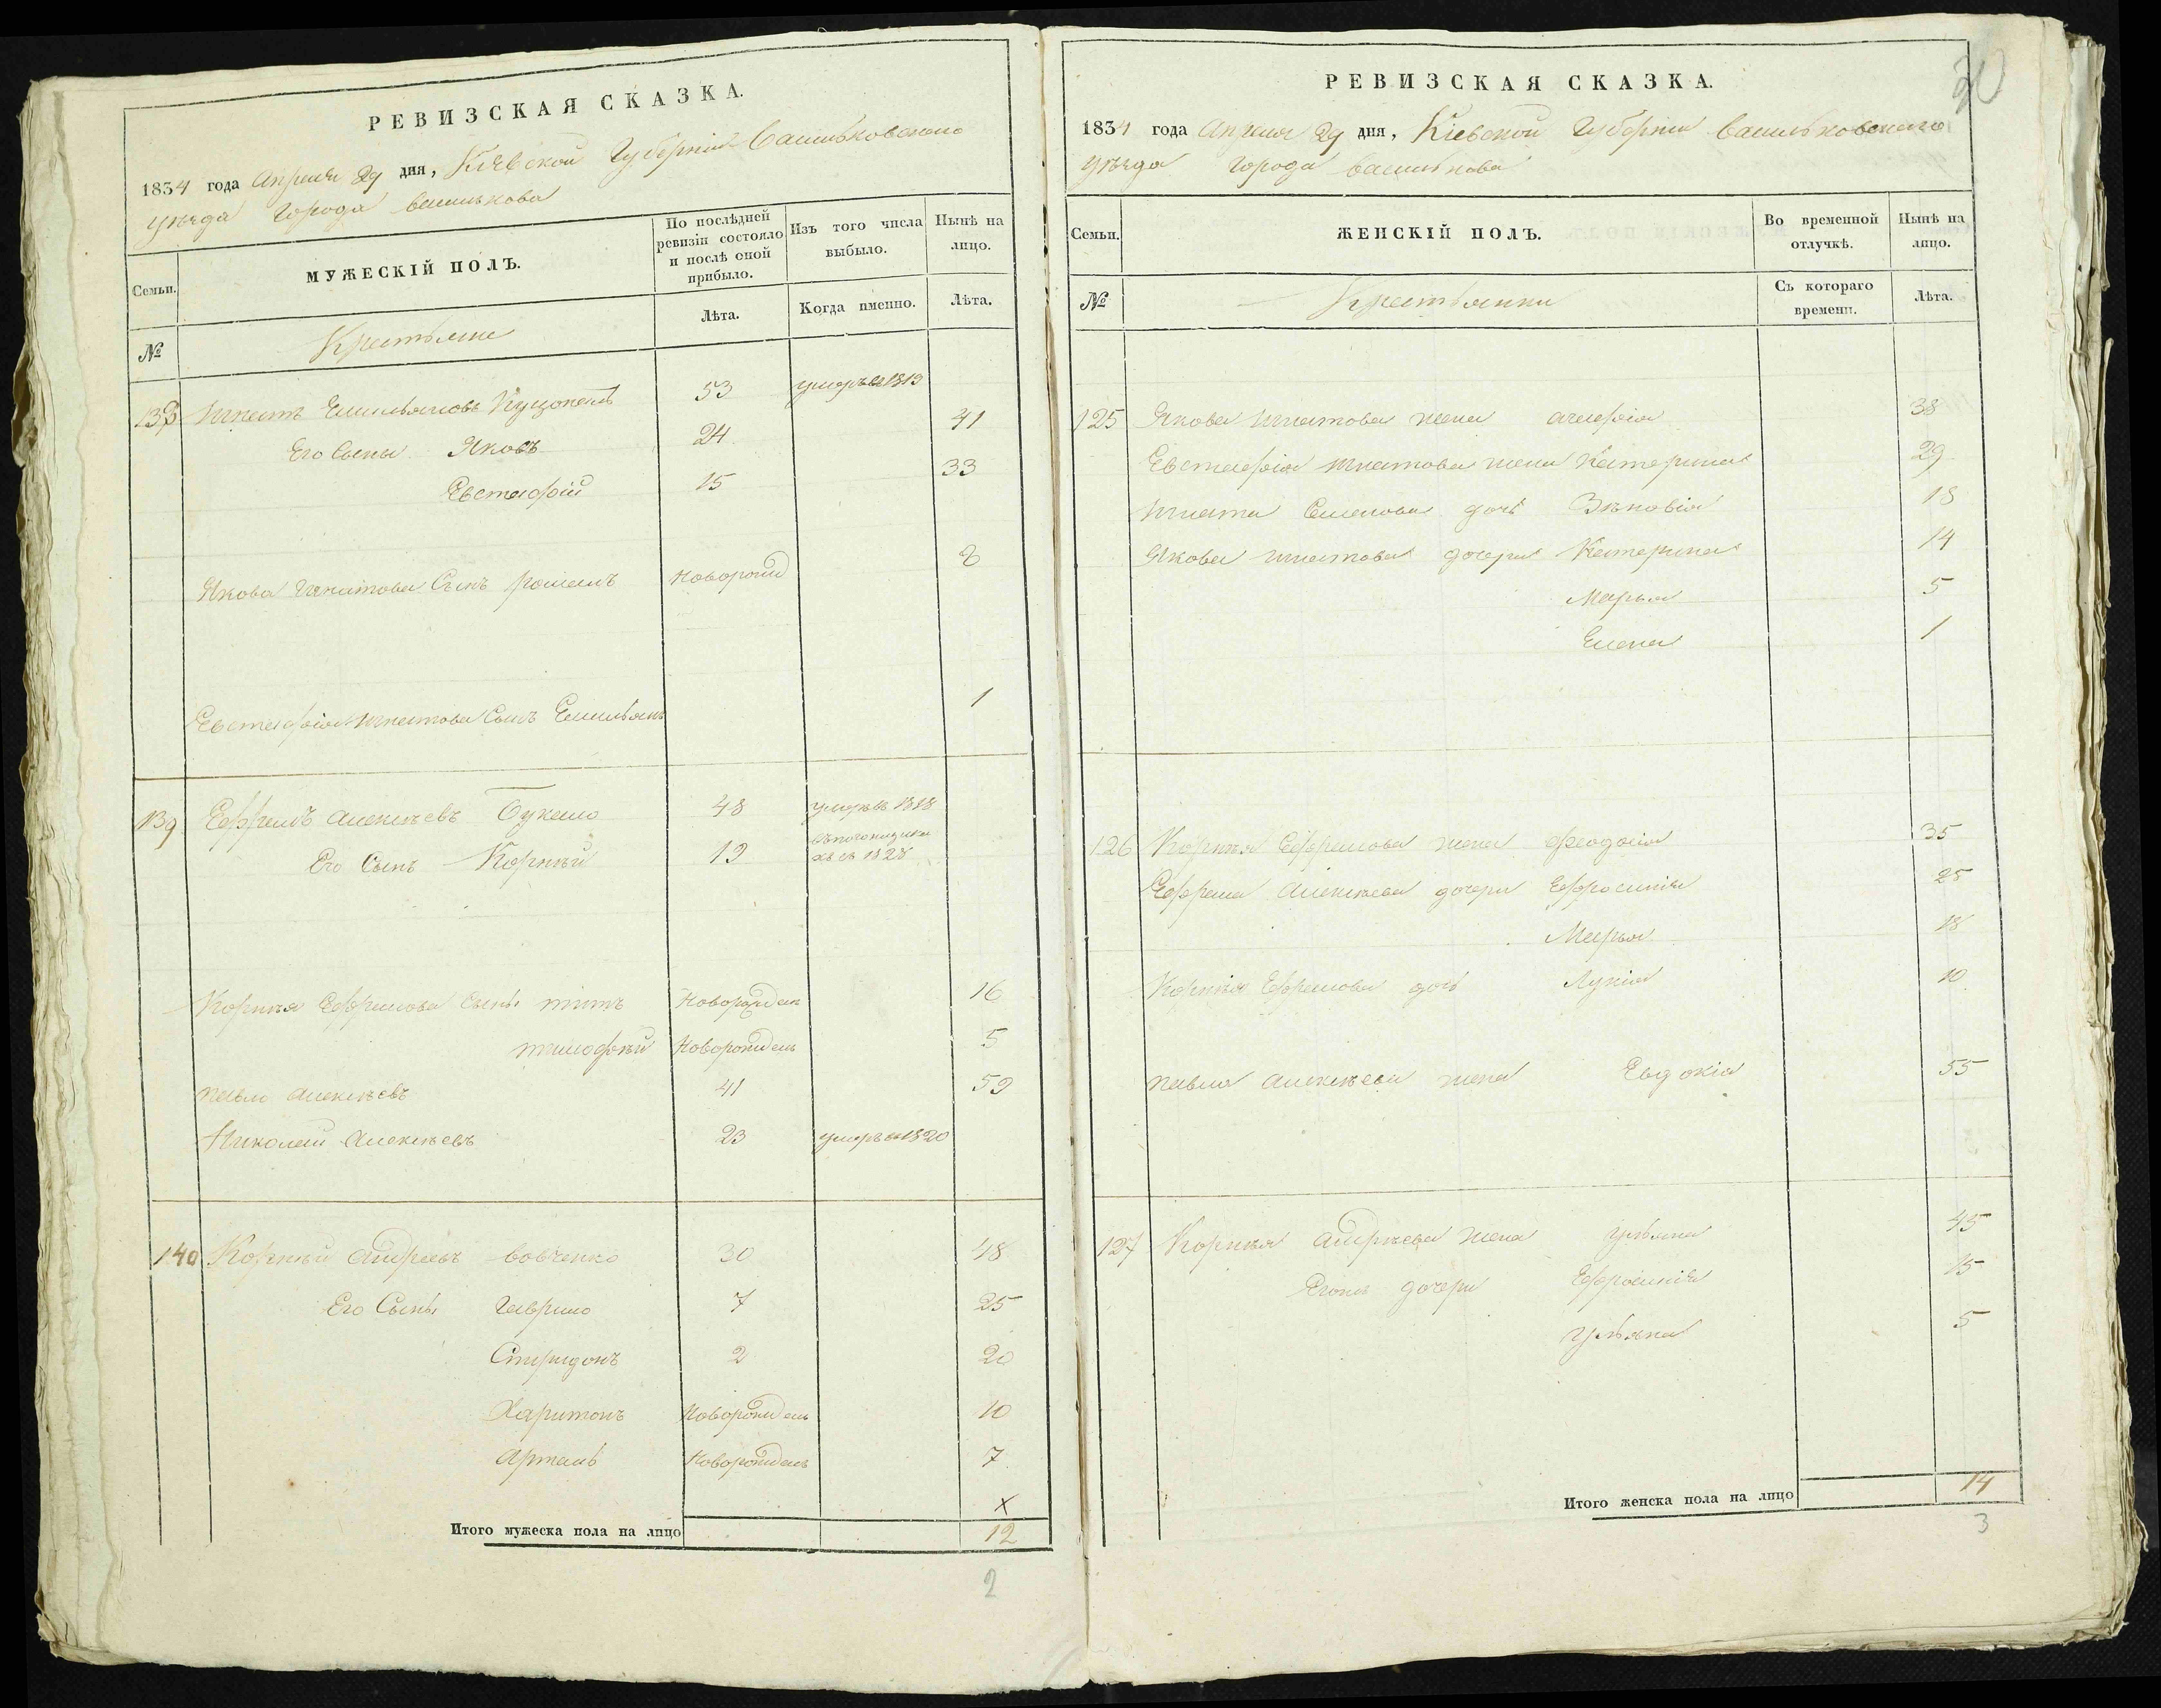 РЕВИЗСКАЯ СКАЗКА.
1834 года Апреля 29 дня, Кіевской Губерніи Васильковского
уѣзда Города Василькова
Семьи. МУЖЕСКІЙ ПОЛЪ. По послѣдней ревизіи состояло и послѣ оной прибыло. Изъ того числа выбыло. Нынѣ на лицо.
№ Крестьяне Лѣта. Когда именно. Лѣта.
138 Игнатъ Емильяновъ 53 умеръ въ 1813
Его Сыны Яковъ 24 41
Евстафій 15 33
Якова Игнатова Сынъ РоманъНоворожд 8
Евстафія Игнатова Сынъ Емильянъ 1
139 Ефремъ Алексѣевъ Букало 48 умеръ въ 1818
Его Сынъ Корнѣй 19 1828
Корнѣя Ефремова Сыны Титъ Новорожден 16
Тимофѣй Новорожден 5
Павло Алексѣевъ 41 59
Николай Алексѣевъ 23 умеръ въ 1820
140 Корнѣй Андреевъ Вовченко 30 48
Его Сыны Гаврило 7 25
Спиридонъ 2 20
Харитонъ Новорожден 10
Артемъ Новорожден 7
х
Итого мужеска пола на лицо 12
2
30
РЕВИЗСКАЯ СКАЗКА.
1834 года Апреля 29 дня, Кіевской Губерніи Васильковского
уѣзда Города Василькова
Семьи. ЖЕНСКІЙ ПОЛЪ. Во временной отлучкѣ. Нынѣ на лицо.
№ Крестьянки Съ котораго времени. Лѣта.
125 Якова Игнатова жена Агафія 38
Евстафія Игнатова жена Катерина 29
Игната дочь Зѣновія 18
Якова Игнатова дочери Катерина 14
Марья 5
Елена 1
126 Корнѣя Ефремова жена Феодосія 35
Ефрема Алексѣева дочери Ефросинія 25
Марья 18
Корнѣя Ефремова дочь Лукія 10
Павла Алексѣева жена Евдокія 55
127 Корнѣя Андрѣева жена Ульяна 45
Егожъ дочери Ефросинія 15
Ульяна 5
Итого женска пола на лицо 14
3